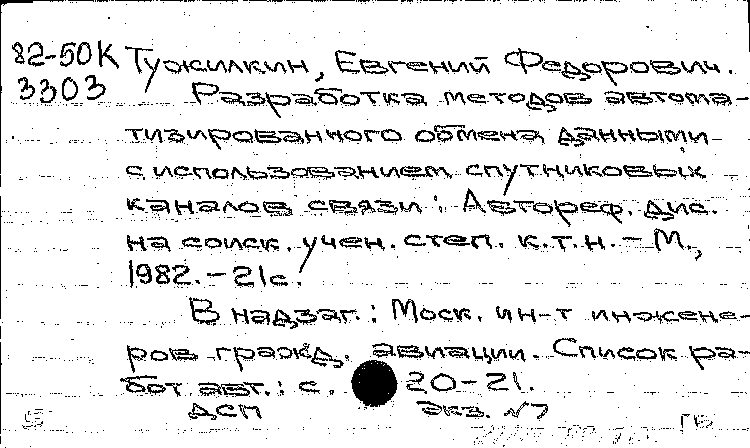 82-50К Тужилкин, Евгений Федорович.
3303 Разработка методов автома-
тизированного обмена данными
с использованием спутниковых
каналов связи : Автореф. дис.
на соиск. учен. степ. к.т.н. – М.,
1982. – 21с.
В надзаг. : Моск. ин-т инжене-
ров гражд. авиации. Список ра-
бот авт. : с. 20–21.
ДСП экз. №7